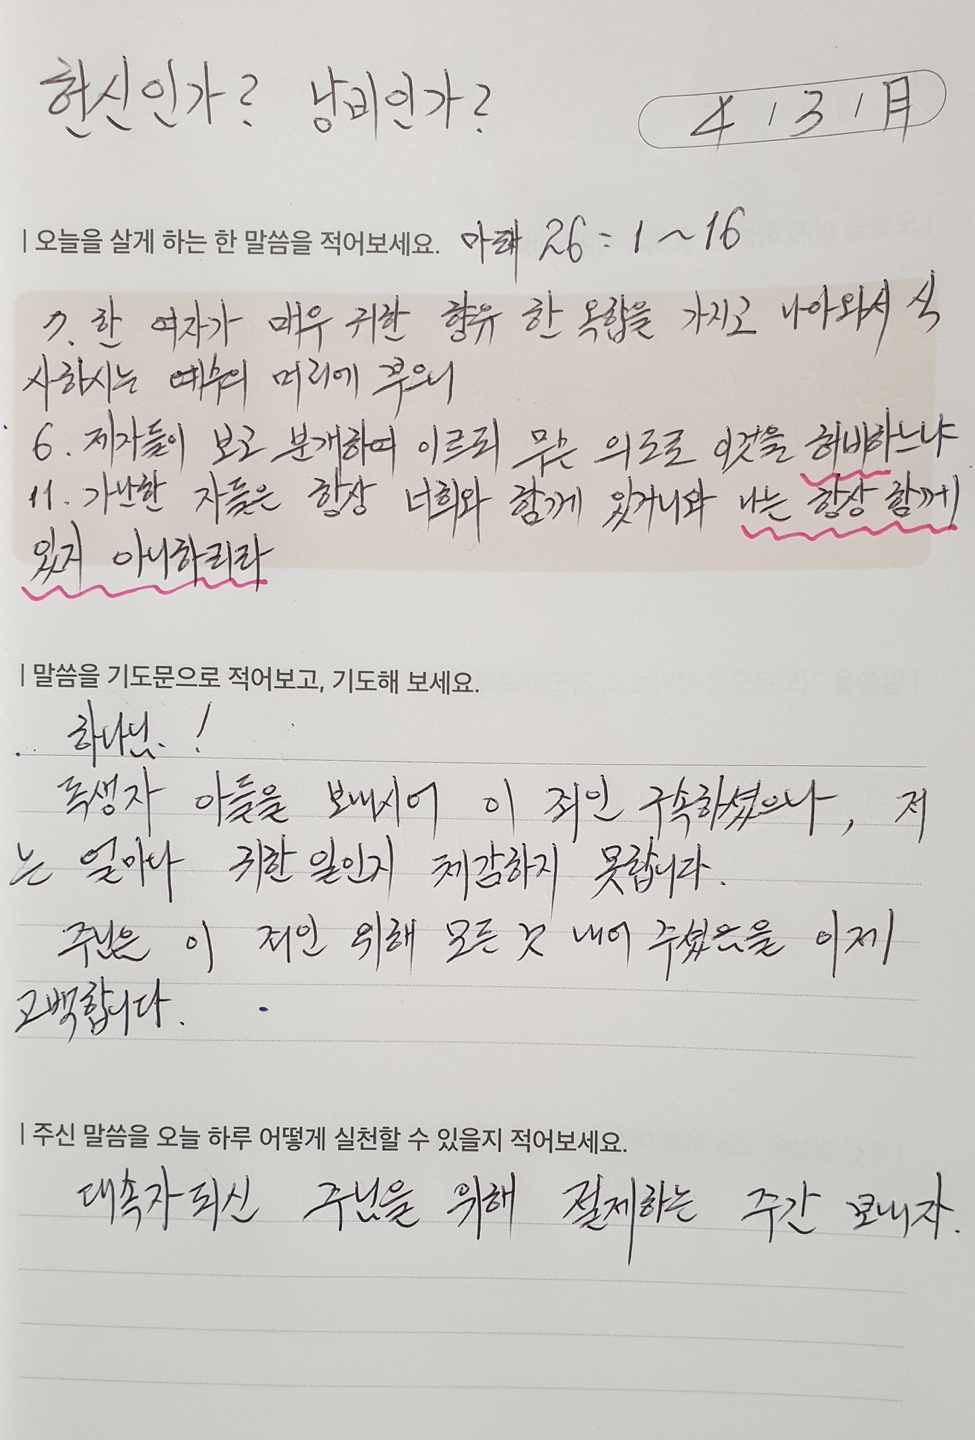 헌신인가? 낭비인가?
4 / 3 / 月
| 오늘을 살게 하는 한 말씀을 적어보세요. 마태 26 : 1 ~ 16
7. 한 여자가 매우 귀한 향유 한 옥합을 가지고 나아와서 식
사하시는 예수의 머리에 부으니
6. 제자들이 보고 분개하여 이르되 무슨 의도로 이것을 허비하느냐
11. 가난한 자들은 항상 너희와 함께 있거니와 나는 항상 함께
있지 아니하리라
| 말씀을 기도문으로 적어보고, 기도해 보세요.
하나님. !
독생자 아들을 보내시어 이 죄인 구속하셨으나, 저
는 얼마나 귀한 일인지 체감하지 못합니다.
주님은 이 죄인 위해 모든 것 내어 주셨음을 이제
고백합니다.
| 주신 말씀을 오늘 하루 어떻게 실천할 수 있을지 적어보세요.
대속자 되신 주님을 위해 절제하는 주간 보내자.